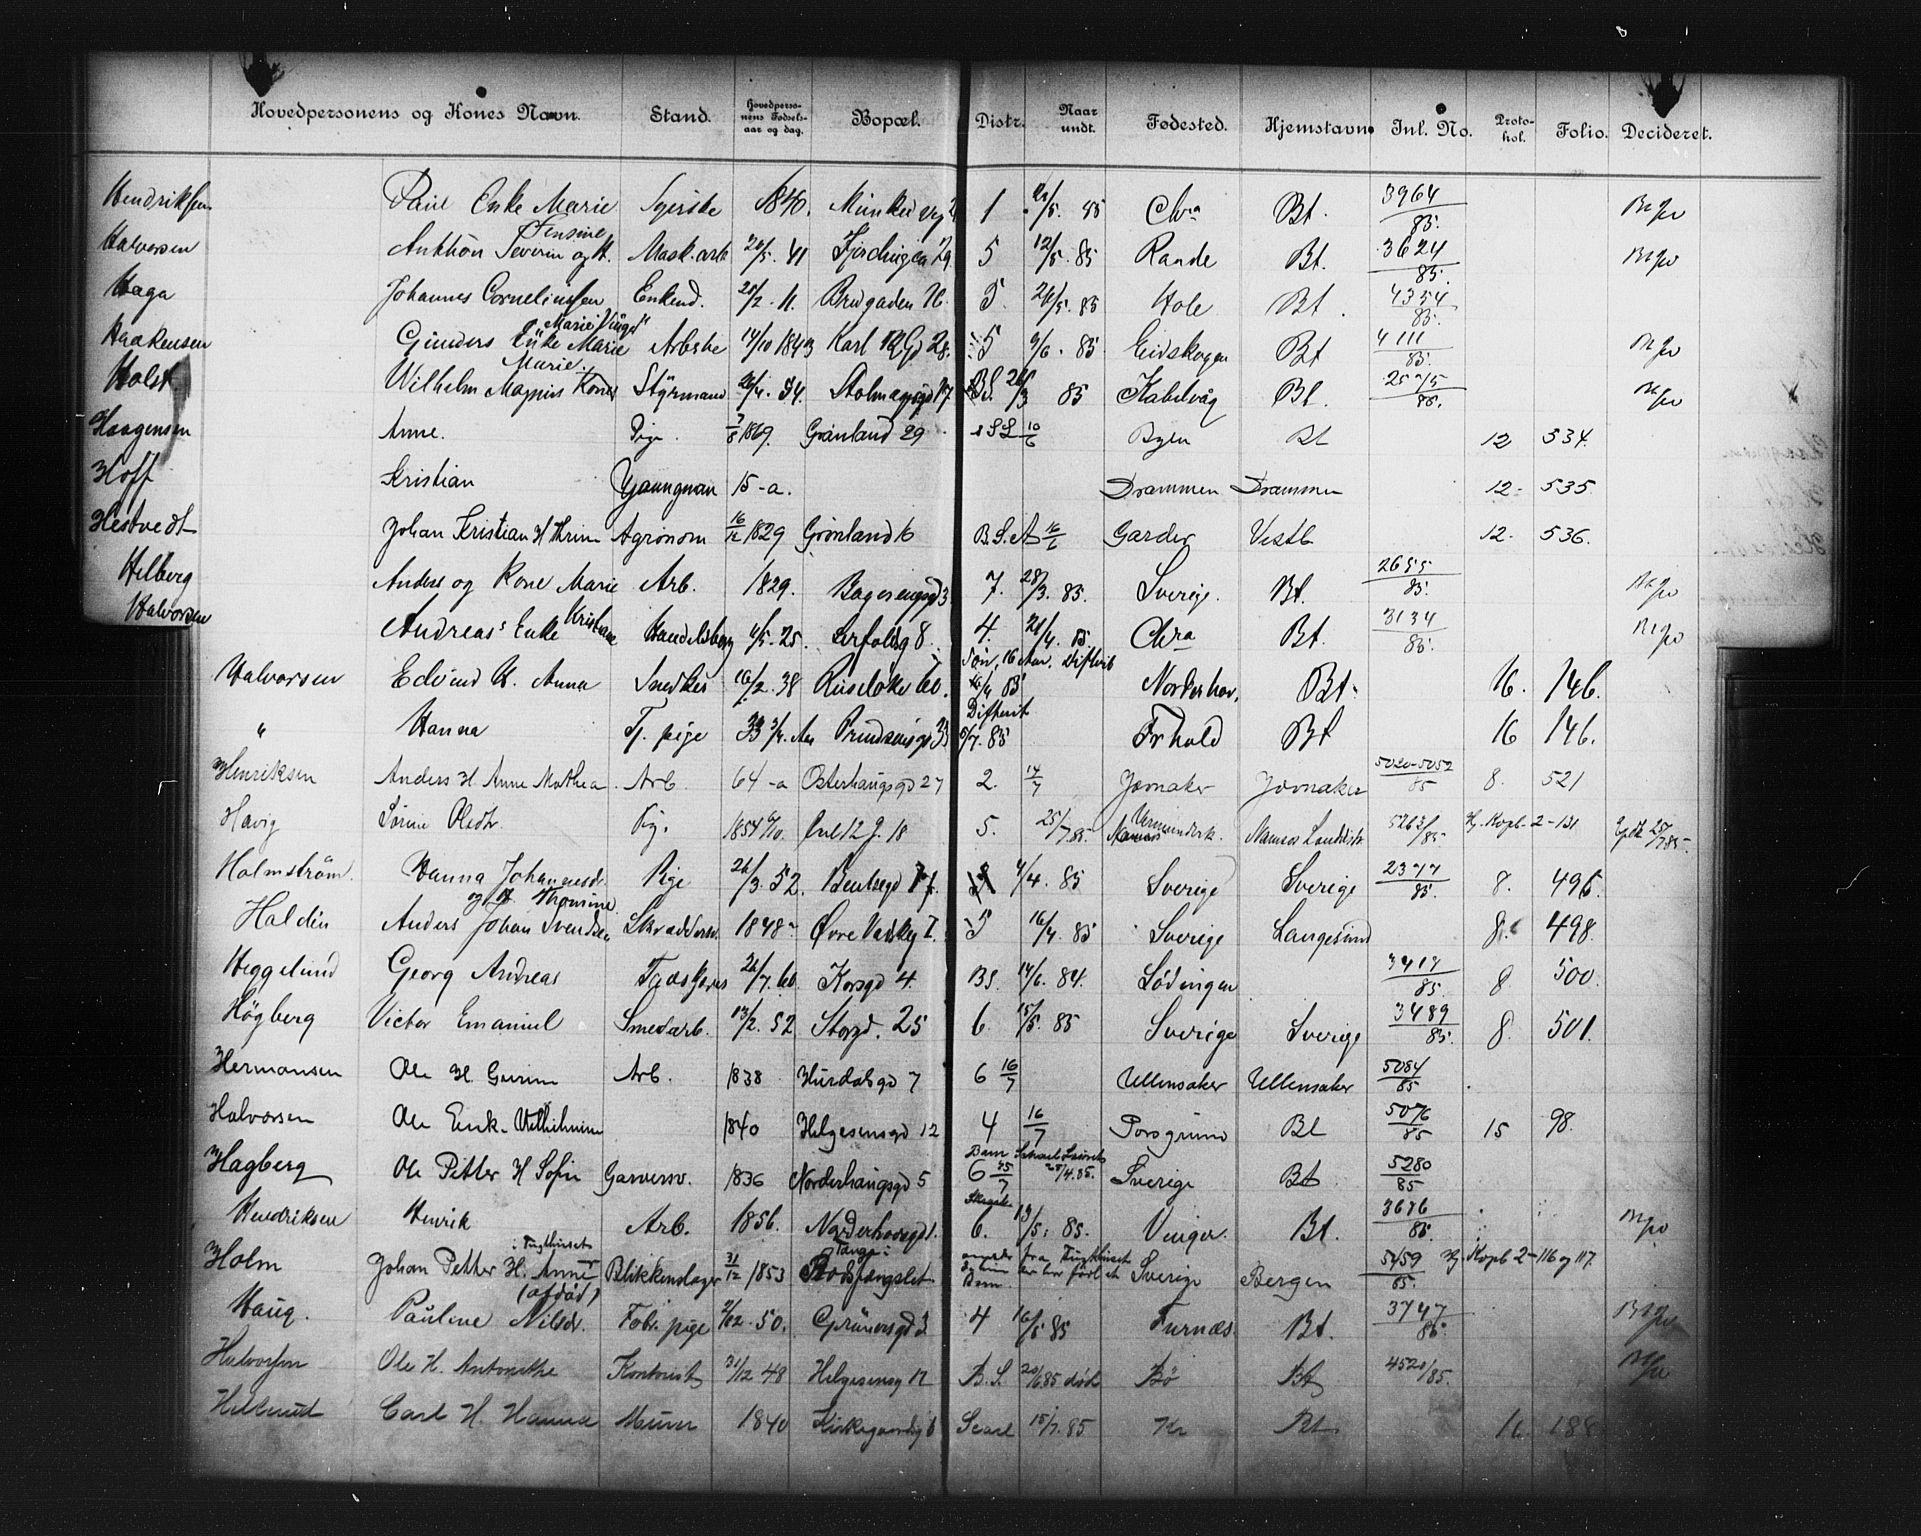 Hovedpersonens og Kones Navn. Stand. Hovedpersonens Fødselsaar og dag. Bopæl. Distr. Naar undt. Fødested. Hjemstavn. Inl. No. Protokol. Folio. Decideret.
Hendriksen Paul Enke Marie Syerske 1840. Munkedvg 1 /5. 85 Chra Bt. 3964/85.
Halvorsen Anthon Severin og H. Jensine Mask.arb 20/5. 41 Fjerdingen 29 5 12/5. 85 Rande Bt. 3624/85
Haga Johannes Corneliussen Enkem. 20/2. 11. Brugaden 16. 5. 21/5. 85 Hole Bt. 4354/85.
Haakensen Gunders Enke Marie Arbske 14/10 1843 Karl 12 Gd 28. 5 9/6. 85 Eidskogen Bt 4111/85
Holst Wilhelm Magnus Kone Marie. Styrmand 26/4. 34. Stolmagergd 17 B.S. 26/3 85 Kabelvåg Bt. /85.
Haagensen Anne. Pige. 7/8 1869. Grønland 29 10/6 Byen Bt 12 534.
Hoff Kristian Youngman 15-a. Drammen Drammen 12- 535.
Hestvedt Johan Kristian H Thrine Agronom 16/12 1829 Grønland 16 B.S. 16/6 Garder Vestb 12. 536.
Helberg Anders og Kone Marie Arb. 1829. Bagerengd 3 7. 28/3. 85. Sverige. Bt. 2655/85.
Halvorsen Andreas's Enke Kristiane Handelsborg 4/5. 25. Sørfoldsg 8. 4. 21/4. 85. Chra Bt. 3134/85.
Halvorsen Edvind H. Anna Snedker 16/2. 38 Ruseløkv 60. Søn, 16 Aar. Difterit 16/4 85 Norderhov, Bt. 16. 146.
" Hanna Tj. pige 33 Prindsensgd 33 Difterit 5/7. 85 Frhold Bt 16 146.
Henriksen Anders H Anne Mathea Arb. 64-a Osterhaugsgd 27 2. 14/7 Jævnaker Jævnaker 5020-5052/85 8. 521
Havig Sørine Olsdtr. Pig. 1854 Enl 12 J. 18 5. 25/7 85. Namsos Landdistr. 5263/85. Hj. Kopb. 2-131 25/7 85.
Holmström. Hanna Johannesdr. Pige 26/3. 52. Bentsegd 17. 4/4. 85 Sverige Sverige 2377/85. 8. 496.
Haldin Anders Johan Svendsen og H Thomine Skræddersv. 1848- Øvre Vadskg 7. 5 16/4. 85 Sverige Langesund 8. 498.
Heggelund Georg Andreas 26/7. 60 Korsgd 4. BS. 14/6. 84. Lødingen 3417/85. 8 500.
Högberg Victor Emanuel Smedarb. 13/2. 52 Storgd. 25 6 15/5. 85 Sverige Sverige 3489/85. 8. 501.
Hermansen Ole H Gurine Arb. 1838 Hurdalsgd 7 6 16/7 Ullensaker Ullensaker 5084/85
Halvorsen Ole Enk. Vilhelmine 1840 Helgesensgd 12 4 16/7 Porsgrund Bt 5076/85 15 98.
Hagberg Ole Petter H Sofie Garversv. 1836 Norderhaugsgd 5 Barn 6 25/7 28/4. 85. Sverige Bt 5280/85
Hendriksen Henrik Arb. 1856. Norderhovsgd 1. 6. 13/5. 85. Vinger. Bt. 3676/85.
Holm Johan Petter H. Anne i Tugthuset (afdød) Blikkenslager 31/12 1853 Bodsfængslet fra Tugthuset Sverige Bergen 5459/85. Hj. Kopb 2-116 og 117.
Haug. Pauline Nilsdr. Fabr. pige 2/12. 50. Grünersgd 3. 4 16/5 85 Furnæs. Bt. 3747/85
Halvorsen Ole H. Antonethe Kontorist 31/12 48 Helgesensg 12 B.S. 20/6 85 død Bø Bt 4520/85.
Hellerud Carl H. Hanna Murer 1840 Kirkegaardsg 6 Scarl 15/7. 85 Kr Bt 16. 188